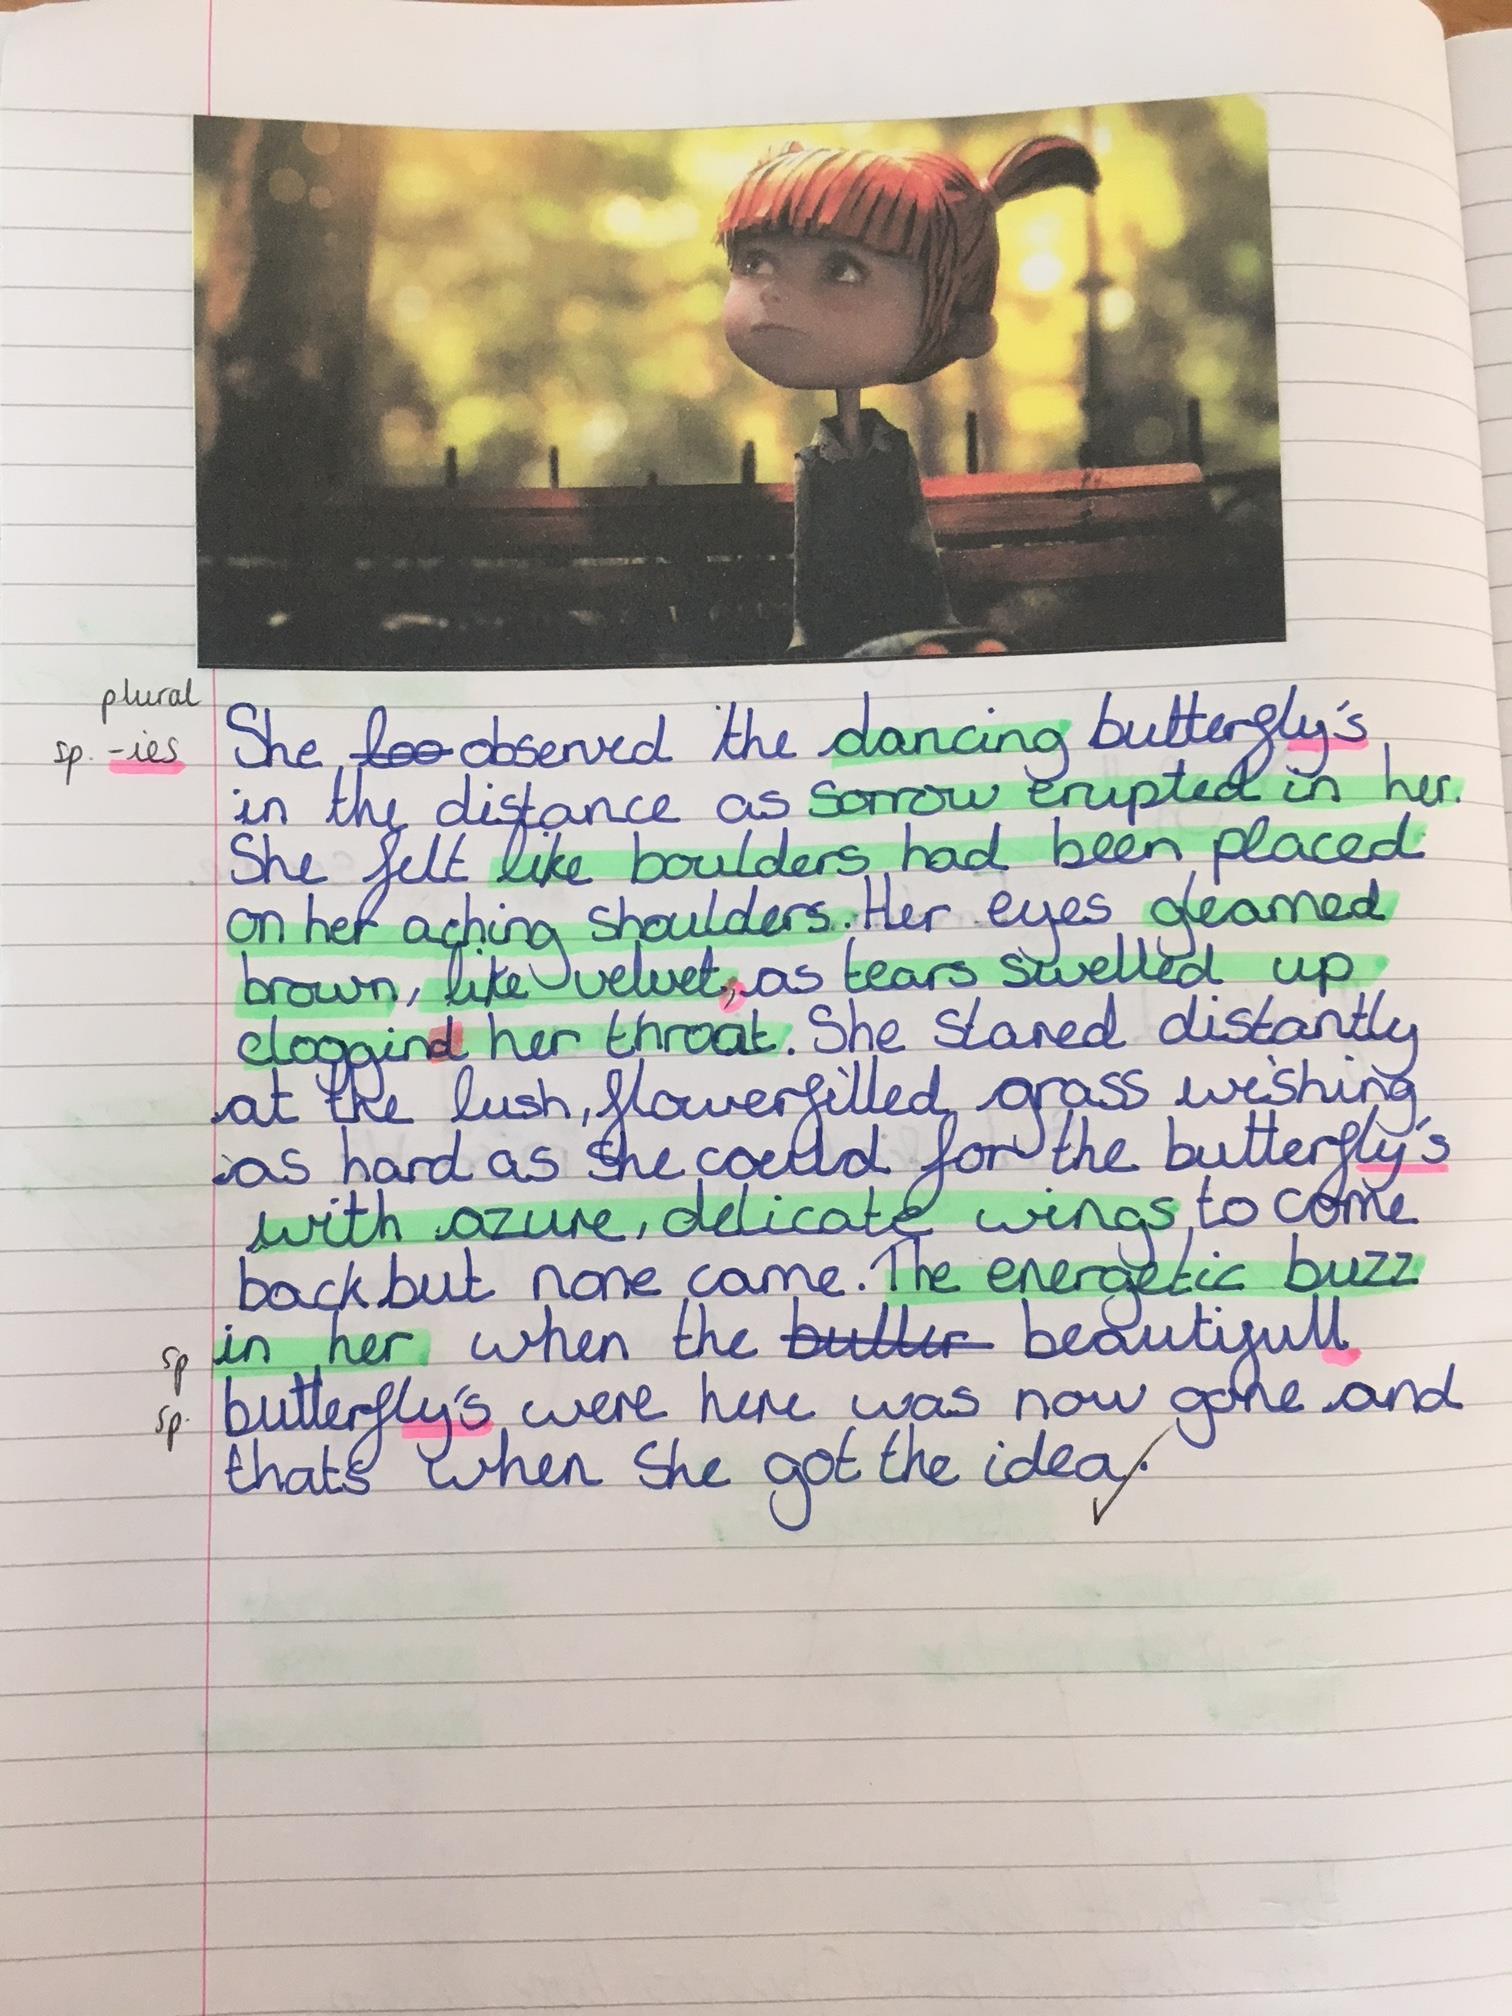 plural
sp. -ies
She loo observed the dancing butterfly's
in the distance as sorrow erupted in her.
She felt like boulders had been placed
on her aching shoulders. Her eyes gleamed
brown, like velvet, as tears swelled up
cloggind her throat. She stared distantly
at the lush, flowerfilled grass wishing
as hard as she could for the butterfly's
with azure, delicate wings to come
back but none came. The energetic buzz
sp in her when the butter beautifull
sp. butterfly's were here was now gone and
thats when She got the idea.